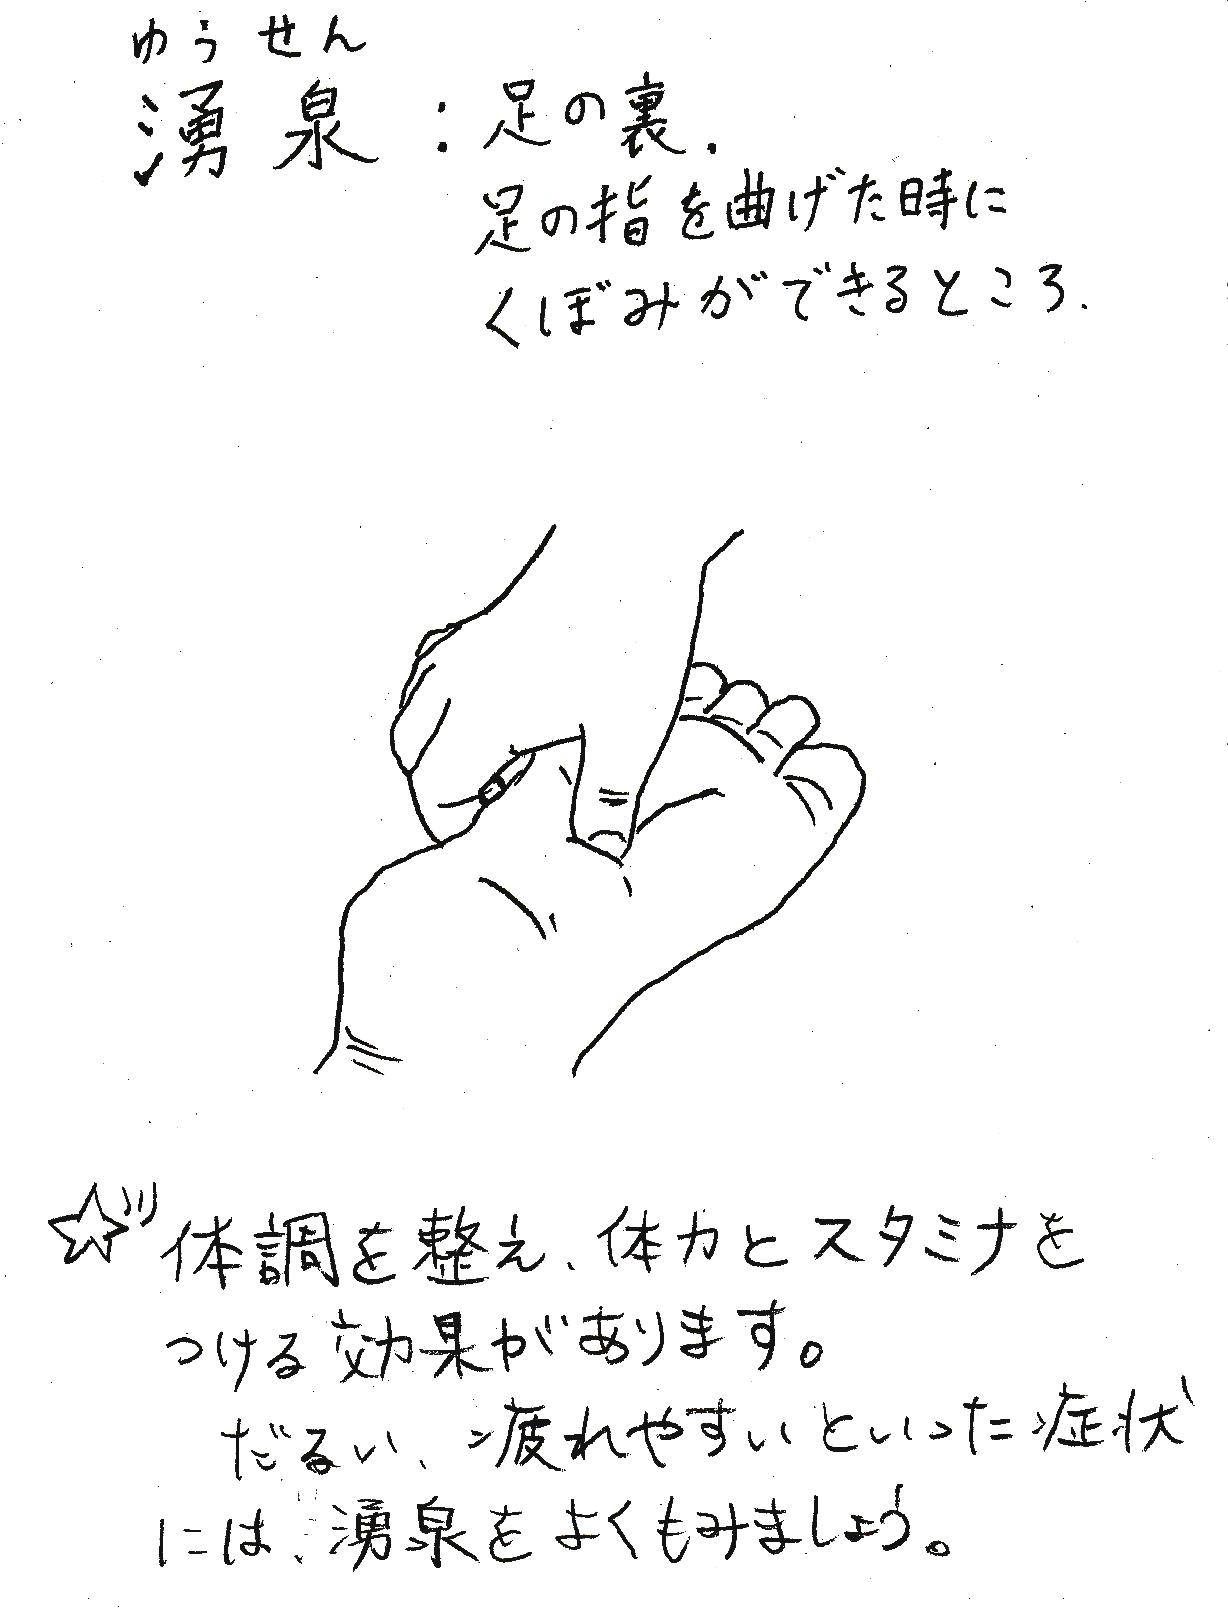 ゆうせん
湧泉：足の裏.
足の指を曲げた時に
くぼみができるところ.
☆体調を整え、体力とスタミナを
つける効果があります。
だるい、疲れやすいといった症状
には、湧泉をよくもみましょう。